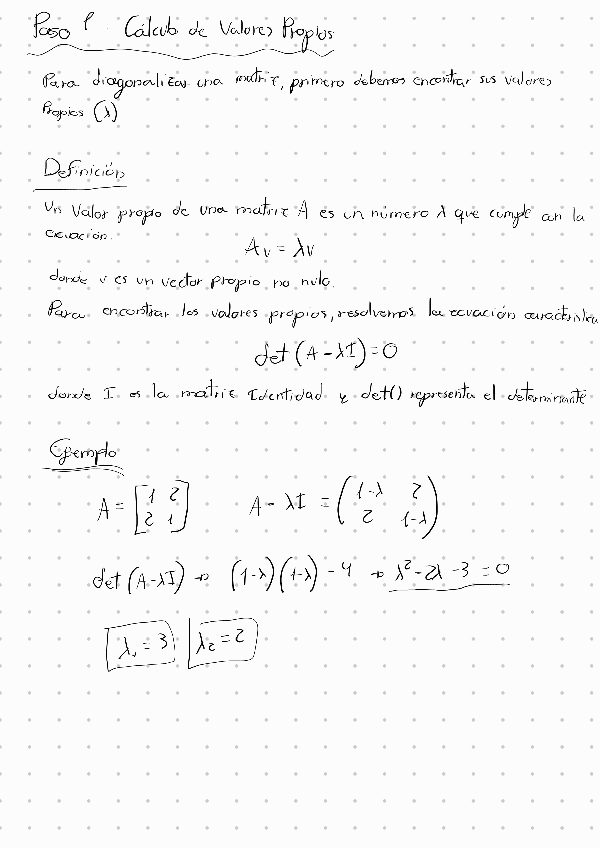 Paso 1. Cálculo de Valores Propios
Para diagonalizar una matriz, primero debemos encontrar sus valores
Propios (λ)
Definición
Un Valor propio de una matriz A es un número λ que cumple con la
ecuación.
Av = λv
donde v es un vector propio no nulo.
Para encontrar los valores propios, resolvemos la ecuación característica
det(A-λI)=0
donde I es la matriz Identidad y det() representa el determinante
Ejemplo
A = [1 2 A-λI = (1-λ 2
2 1] 2 1-λ)
det(A-λI) → (1-λ)(1-λ)-4 → λ²-2λ-3=0
λ₁=3 λ₂=2